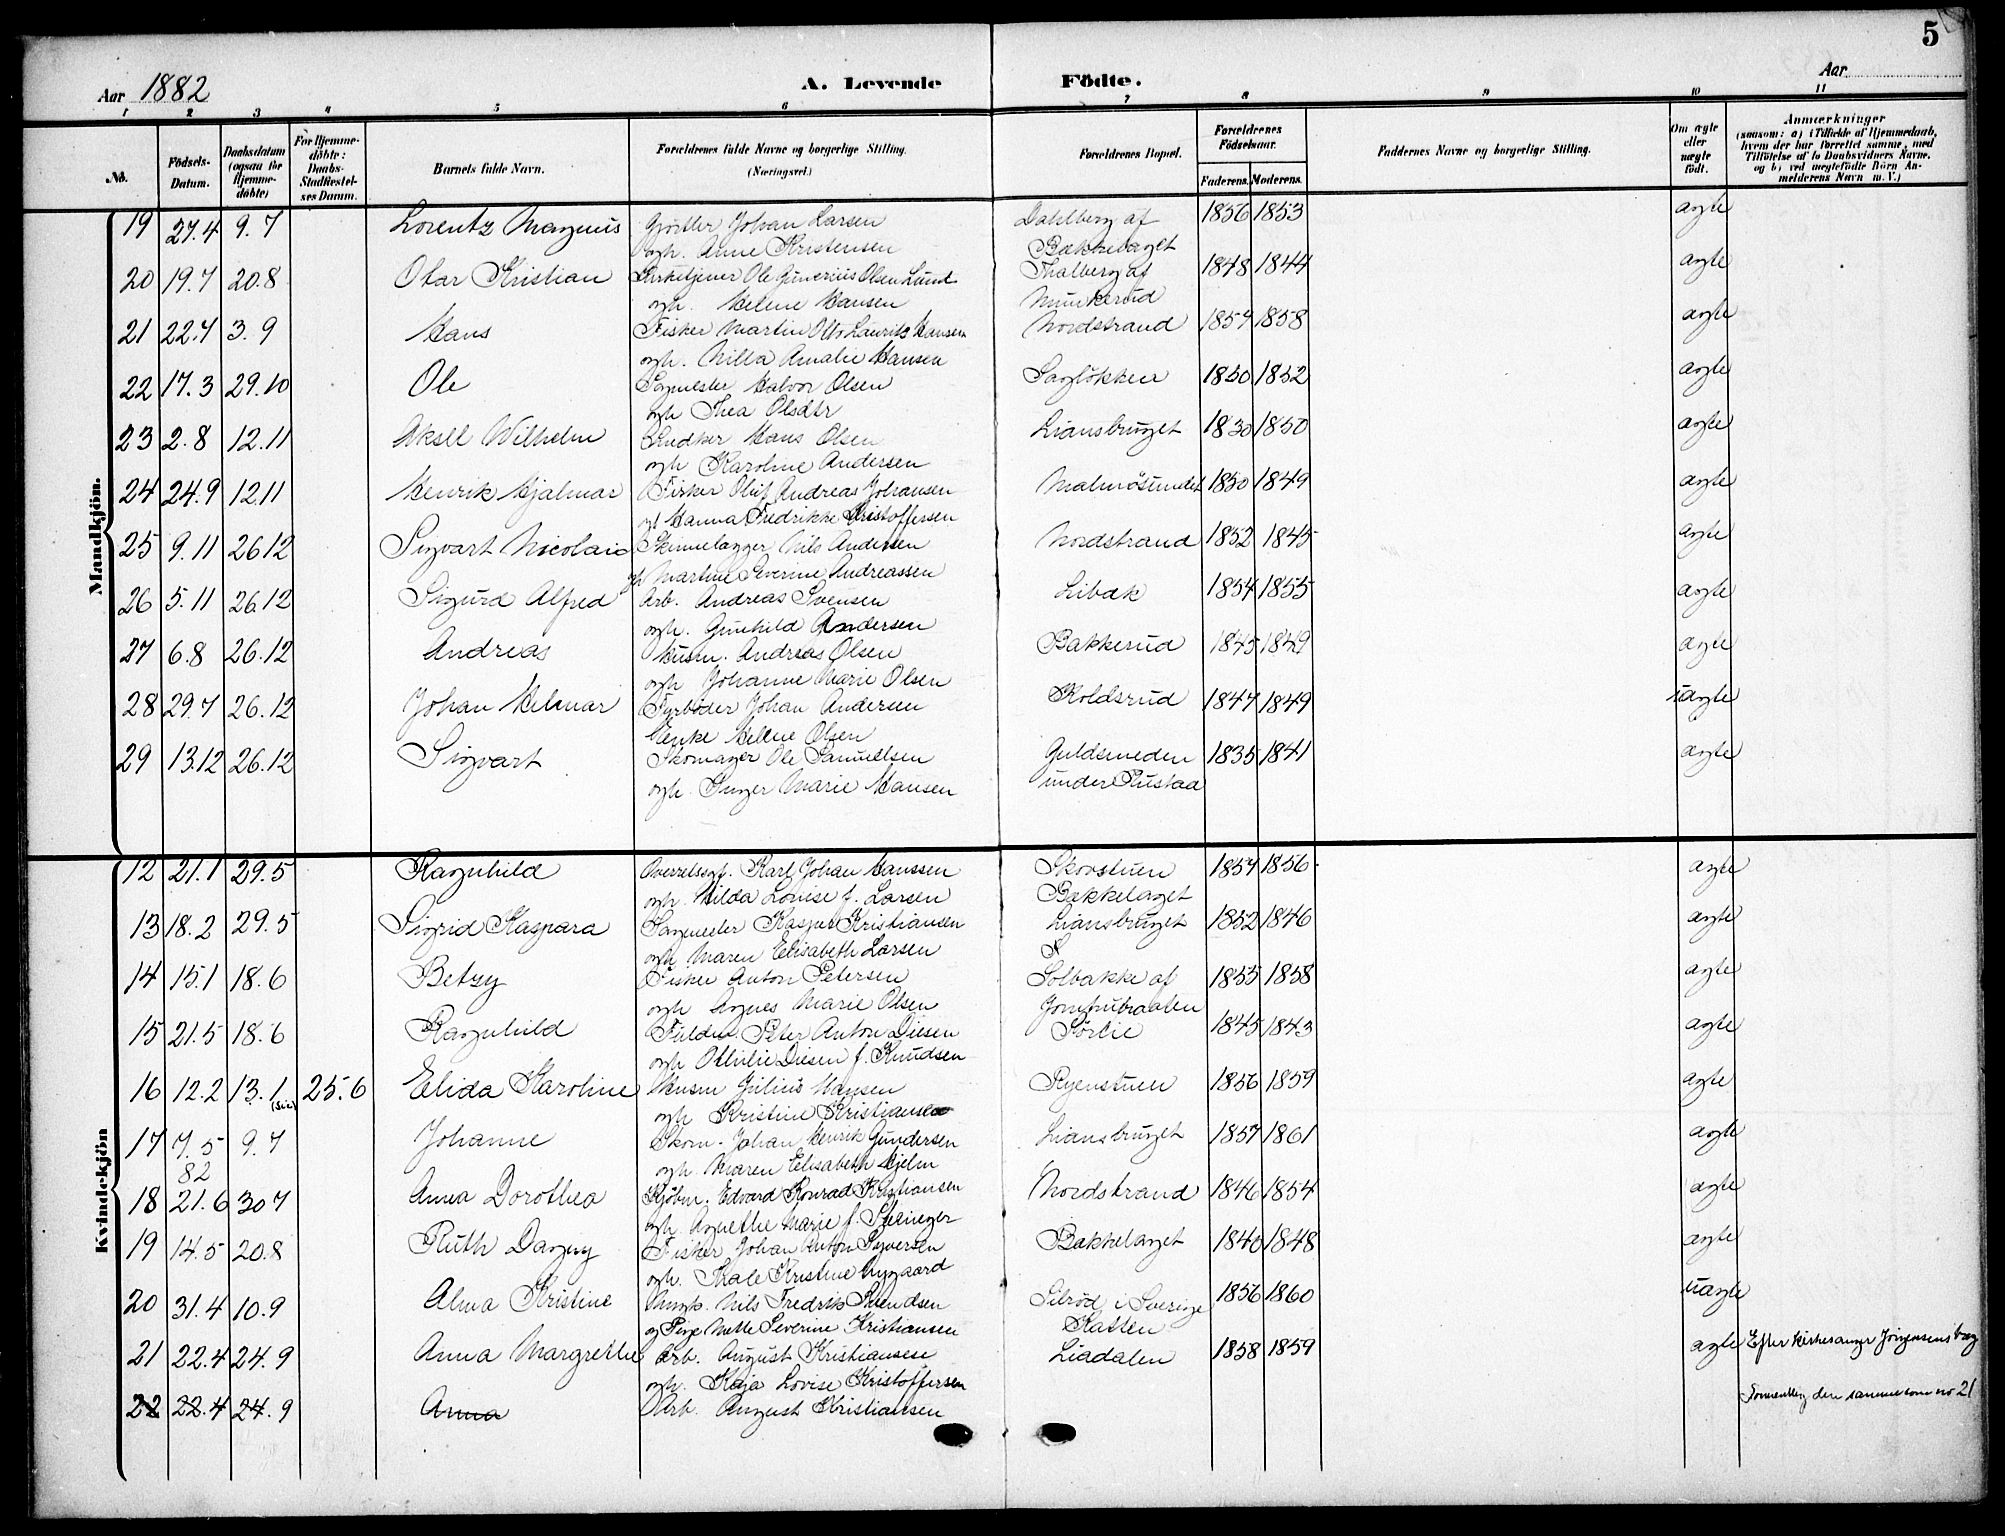 5
Aar 1882 A. Levende Födte. Aar
1 2 3 4 5 6 7 8 9 10 11
No. Födsels-Datum. Daabsdatum (ogsaa for Hjemmedöbte) For Hjemmedöbte: Daabs-Stadfæstelses Datum. Barnets fulde Navn. Forældrenes fulde Navne og borgerlige Stilling. (Næringsvei.) Forældrenes Bopæl. Forældrenes Födselsaar. Faderens. Moderens. Faddernes Navne og borgerlige Stilling. Om ægte eller uægte födt. Anmærkninger (saasom: a) i Tilfælde af Hjemmedaab, hvem der har forrettet samme, med Tilföielse af to Daabsvidners Navne, og b) ved uægtefödte Börn Anmelderens Navn m. V.)
Mandkjön.
19 27.4 9.7 Lorentz Magnus Gjörtler Johan Larsen Dahlberg af 1856 1853 ægte
ogh. Anne Kristensen Bækkelaget
20 19.7 20.8 Otar Kristian Kirketjener Ole Gunerius Olsen Lund Thalberg af 1848 1844 ægte
ogh. Helene Hansen Munkerud
21 22.7 3.9 Hans Fisker Martin Otto Lauritz Hansen Nordstrand 1857 1858 ægte
ogh. Nilla Amalie Hansen
22 17.3 29.10 Ole Sagmester Halvor Olsen Sagløkken 1850 1852 ægte
ogh Thea Olsdtr
23 2.8 12.11 Aksel Wilhelm Snedker Hans Olsen Liansbruget 1830 1850 ægte
ogh Karoline Andersen
24 24.9 12.11 Henrik Hjalmar Fisker Oluf Andreas Johansen Malmøsundet 1850 1849 ægte
Hanna Fredrikke Kristoffersen
25 9.11 26.12 Sigvart Nicolai Skinnelægger Nils Andersen Nordstrand 1852 1845 ægte
Martine Severine Andreassen
26 5.11 26.12 Sigurd Alfred Arb. Andreas Svensen Libak 1854 1855 ægte
ogh. Gunhild Andersen
27 6.8 26.12 Andreas Husm. Andreas Olsen Bakkerud 1845 1849 ægte
ogh Johanne Marie Olsen
28 29.7 26.12 Johan Hilmar Fyrböder Johan Andersen Koldsrud 1847 1849 uægte
Enke Helene Olsen
29 13.12 26.12 Sigvart Skomager Ole Samuelsen Guldsmeden 1835 1841 ægte
ogh. Inger Marie Hansen under Rustad
Kvindekjön
12 21.1 29.5 Ragnhild Overretssgf. Karl Johan Hanssen Skovstuen 1857 1856 ægte
ogh. Hilda Louise f. Larsen Bækkelaget
13 18.2 29.5 Sigrid Kaspara Sagmester Kasper Kristiansen Liansbruget 1852 1846 ægte
ogh Maren Elisabeth Larsen
14 15.1 18.6 Betzy Fisker Anton Petersen Solbakke af 1855 1858 ægte
ogh Agnes Marie Olsen Jomfrubraaten
15 21.5 18.6 Ragnhild Fuldm. Peter Anton Diesen Sörlie 1845 1843 ægte
ogh Othilie Diesen f. Knudsen
16 12.2 13.1 (sic) 25.6 Elida Karoline Husm Julius Hansen Ryenstuen 1856 1859 ægte
ogh Kristine Kristiansen
17 7.5 82 9.7 Johanne Skom. Johan Henrik Gundersen Liansbruget 1857 1861 ægte
ogh. Maren Elisabeth Hjelm
18 21.6 30.7 Anna Dorothea Kjöbm. Edvard Konrad Kristiansen Nordstrand 1846 1854 ægte
ogh. Agnethe Marie f.
19 14.5 20.8 Ruth Dagny Fisker Johan Anton Syversen Bækkelaget 1840 1848 ægte
ogh. Kristine Nygaard
20 31.4 10.9 Alma Kristine Ungk. Nils Fredrik Svendsen i Sverige 1856 1860 uægte
og Pige Mette Severine Kristiansen Katten
21 22.4 24.9 Anna Margrethe Arb. August Kristiansen Liadalen 1858 1859 ægte Efter Kirkesanger Jörgensens bog
ogh. Kaja Lovise Kristoffersen
22 22.4 24.9 Anna Arb. August Kristiansen den samme som no 21